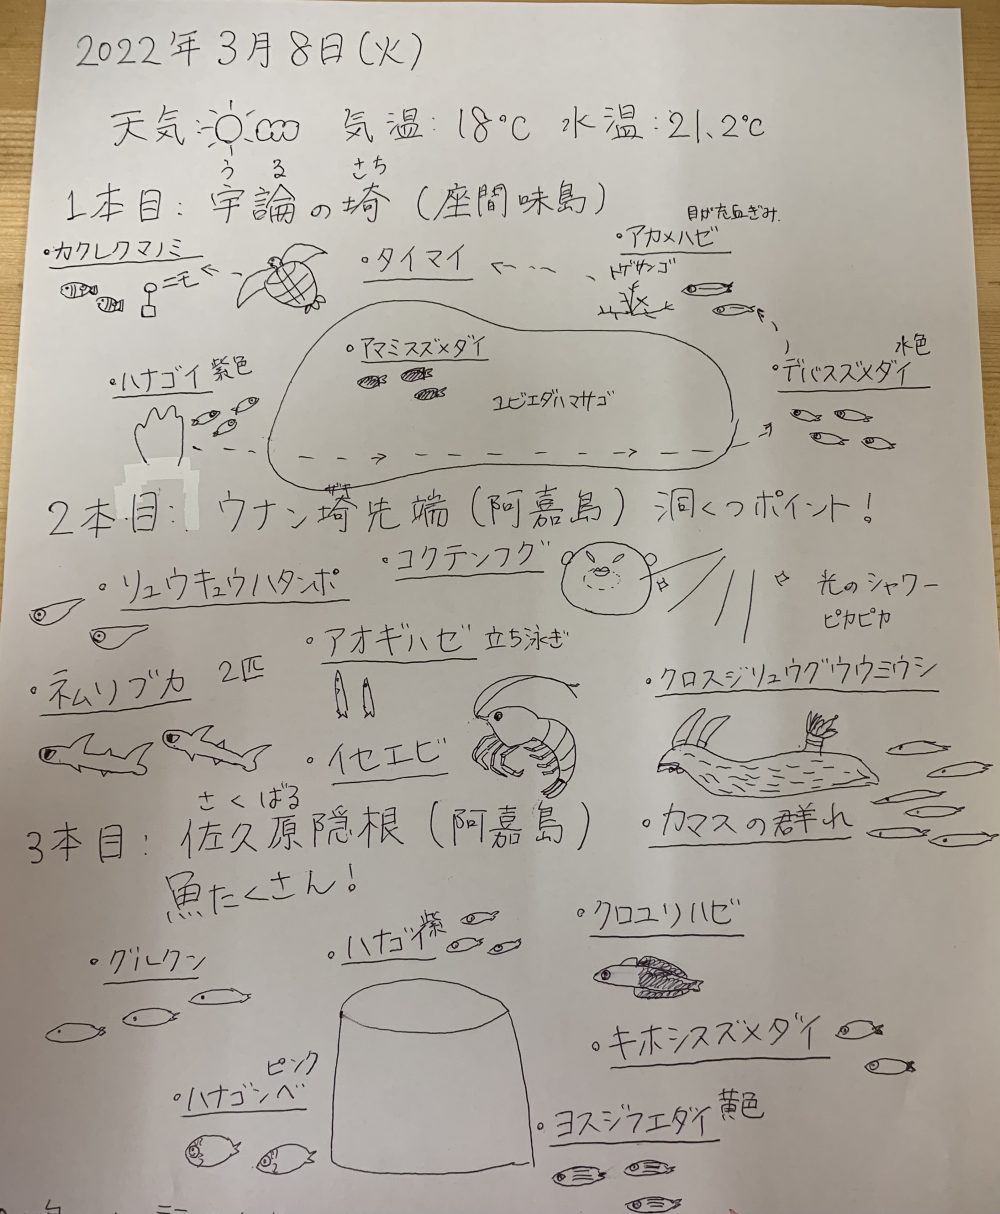 2022年3月8日(火)
天気: 気温:18℃ 水温:21.2℃
うる さち
1本目: 宇論の埼(座間味島)
目が充血ぎみ
・カクレクマノミ ・タイマイ ・アカメハゼ
ニモ トゲサンゴ
・アマミスズメダイ 水色
・ハナゴイ 紫色 ・デバスズメダイ
ユビエダハマサゴ
ザキ
2本目: ウナン埼先端(阿嘉島) 洞くつポイント!
・コクテンフグ
・リュウキュウハタンポ 光のシャワー
ピカピカ
・アオギハゼ 立ち泳ぎ
・ネムリブカ 2匹 ・クロスジリュウグウウミウシ
・イセエビ
さくばる
3本目: 佐久原隠根(阿嘉島) ・カマスの群れ
魚たくさん!
・グルクン ・ハナゴイ 紫 ・クロユリハゼ
・キホシスズメダイ
ピンク
・ハナゴンベ ・ヨスジフエダイ 黄色